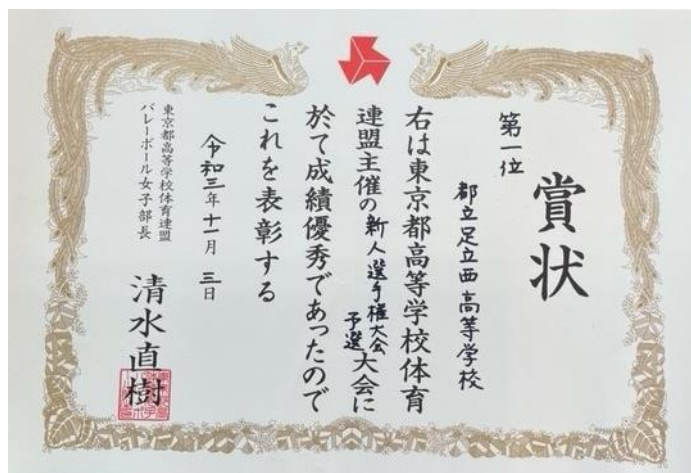 賞状
第一位
都立足立西高等学校
右は東京都高等学校体育
連盟主催の新人選手権大会予選大会に
於て成績優秀であったので
これを表彰する
令和三年十一月三日
東京都高等学校体育連盟
バレーボール女子部長
清水直樹